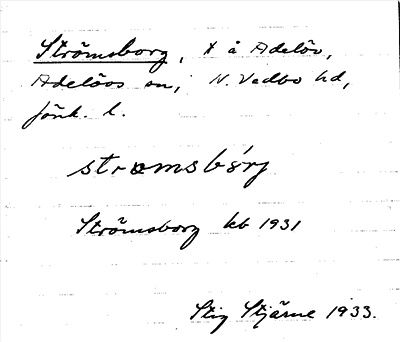 Strömsborg, t å Adelöv,
Adelövs sn, N. Vedbo hd,
Jönk. l.
strømsbórj
Strömsborg kb 1931
Stig Stjärne 1933.